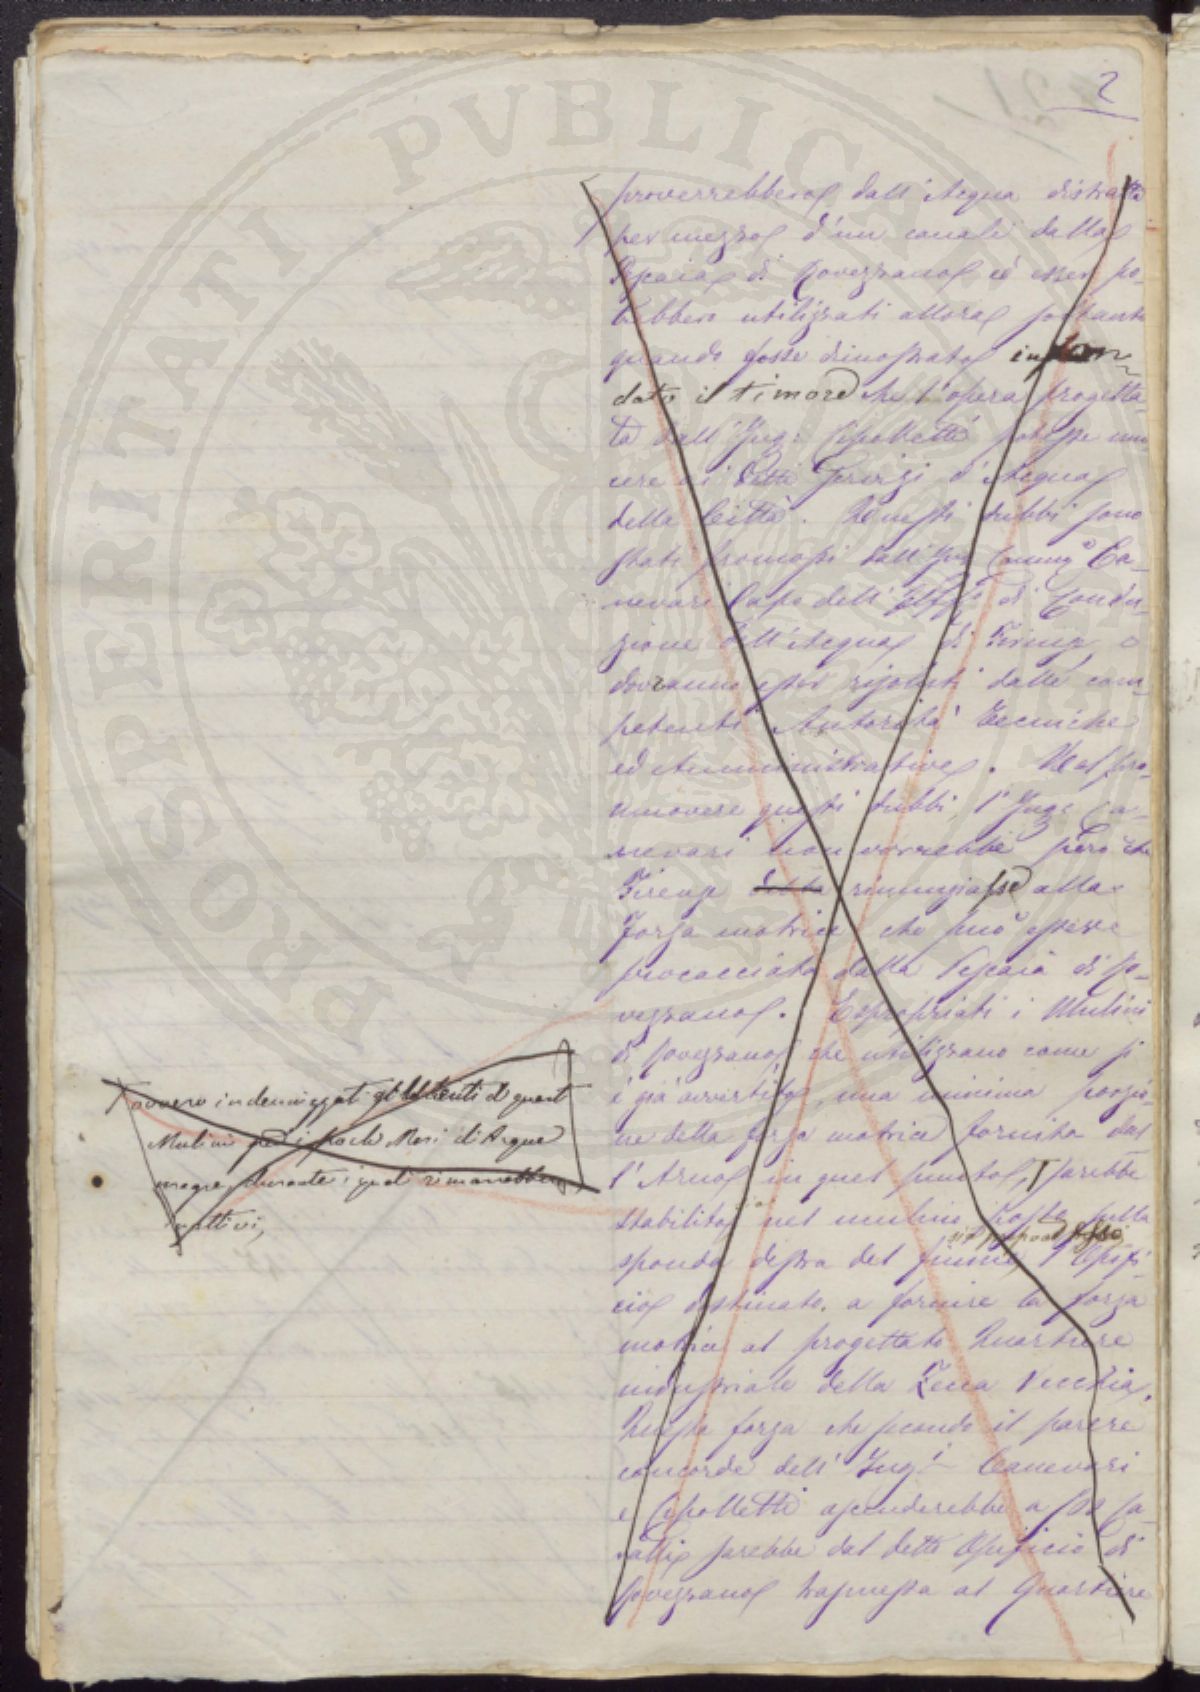 2
proverrebbero dall'Acqua distratta
per mezzo d'un canale dalla
Pescaia di Rovezzano ed esser po-
trebbero utilizzati allora soltanto
quando fosse dimostrato infon-
dato il timore che l'opera progetta-
ta dall'Ing: Cipolletti potesse nuo-
cere ai detti servizi d'Acqua
della Città. Questi dubbi sono
stati promossi dall'Ing Comm.o Ca-
nevari Capo dell' di Condu-
zione dell'Acqua di Firenze, e
dovranno esser risoluti dalle com-
petenti Autorità Tecniche
ed Amministrative. Nel pro-
muovere questi dubbi, l'Inge Ca-
nevari non vorrebbe però che
Firenze rinunziasse alla
forza motrice che può essere
procacciata dalla Pescaia di Ro-
vezzano. Espropriati i Mulini
di Rovezzano che utilizzano come si
è già avvertito, una minima porzio-
ne della forza motrice fornita dal
l'Arno in quel punto, sarebbe
stabilito nel mulino posto sulla
sponda destra del fiume l'Opifi-
cio destinato a fornire la forza
motrice al progettato Quartiere
industriale della Zecca Vecchia.
Questa forza che secondo il parere
concorde dell'Ingi Canevari
e Cipolletti ascenderebbe a ca-
valli sarebbe dal detto Opificio di
Rovezzano trasmessa al Quartiere
ovvero indennizzati gli Utenti di questi
Mulini per i pochi Mesi di Acque
magre durante i quali rimarrebbero
inattivi,
PROSPERITATI PUBLICAE